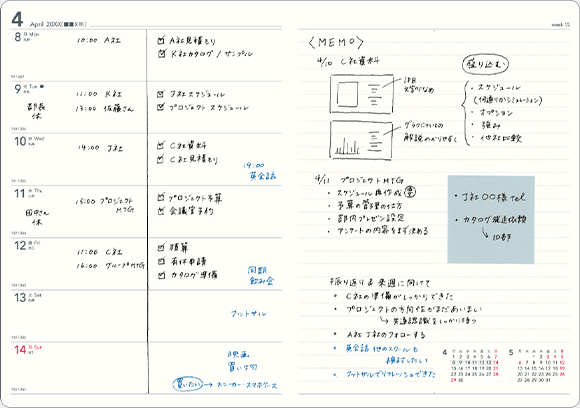 4 April 20XX[■■X年]
8 月 Mon
10:00 A社
☑ A社見積もり
☑ K社カタログ/サンプル
9 火 Tue
部長
休
11:00 K社
13:00 佐藤さん
☑ J社スケジュール
☑ プロジェクト スケジュール
10 水 Wed
14:00 J社
☑ C社資料
☑ C社見積もり
19:00
英会話
11 木 Thu
田中さん
休
15:00 プロジェクト
MTG
☑ プロジェクト予算
☑ 会議室予約
12 金 Fri
11:00 C社
16:00 グループMTG
☑ 精算
☑ 有休申請
☑ カタログ準備
同期
飲み会
13 土 Sat
フットサル
14 日 Sun
映画
買い物
買いたい → スニーカー・スマホケース
week 15
〈MEMO〉
4/10 C社資料
盛り込む
文字少なめ
グラフについての
解説わかりやすく
・スケジュール
(何通りかシミュレーション)
・オプション
・強み
・他社比較
4/11 プロジェクトMTG
・スケジュール再作成
・予算の管理の仕方
・部内プレゼン設定
・アンケートの内容をまず決める
・J社〇〇様 tel
・カタログ発送依頼
10部
振り返り & 来週に向けて
・C社の準備がしっかりできた
・プロジェクトの方向性がまだあいまい
→ 共通認識をしっかり持つ
・A社 J社のフォローする
・英会話 他のスクールも
検討したい
・フットサルでリフレッシュできた
4
5